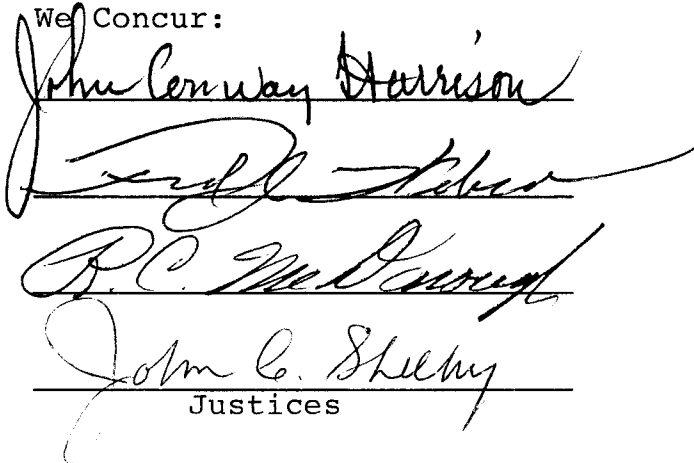 We Concur:
John Conway Harrison
R. C. McDonough
John C. Sheehy
Justices